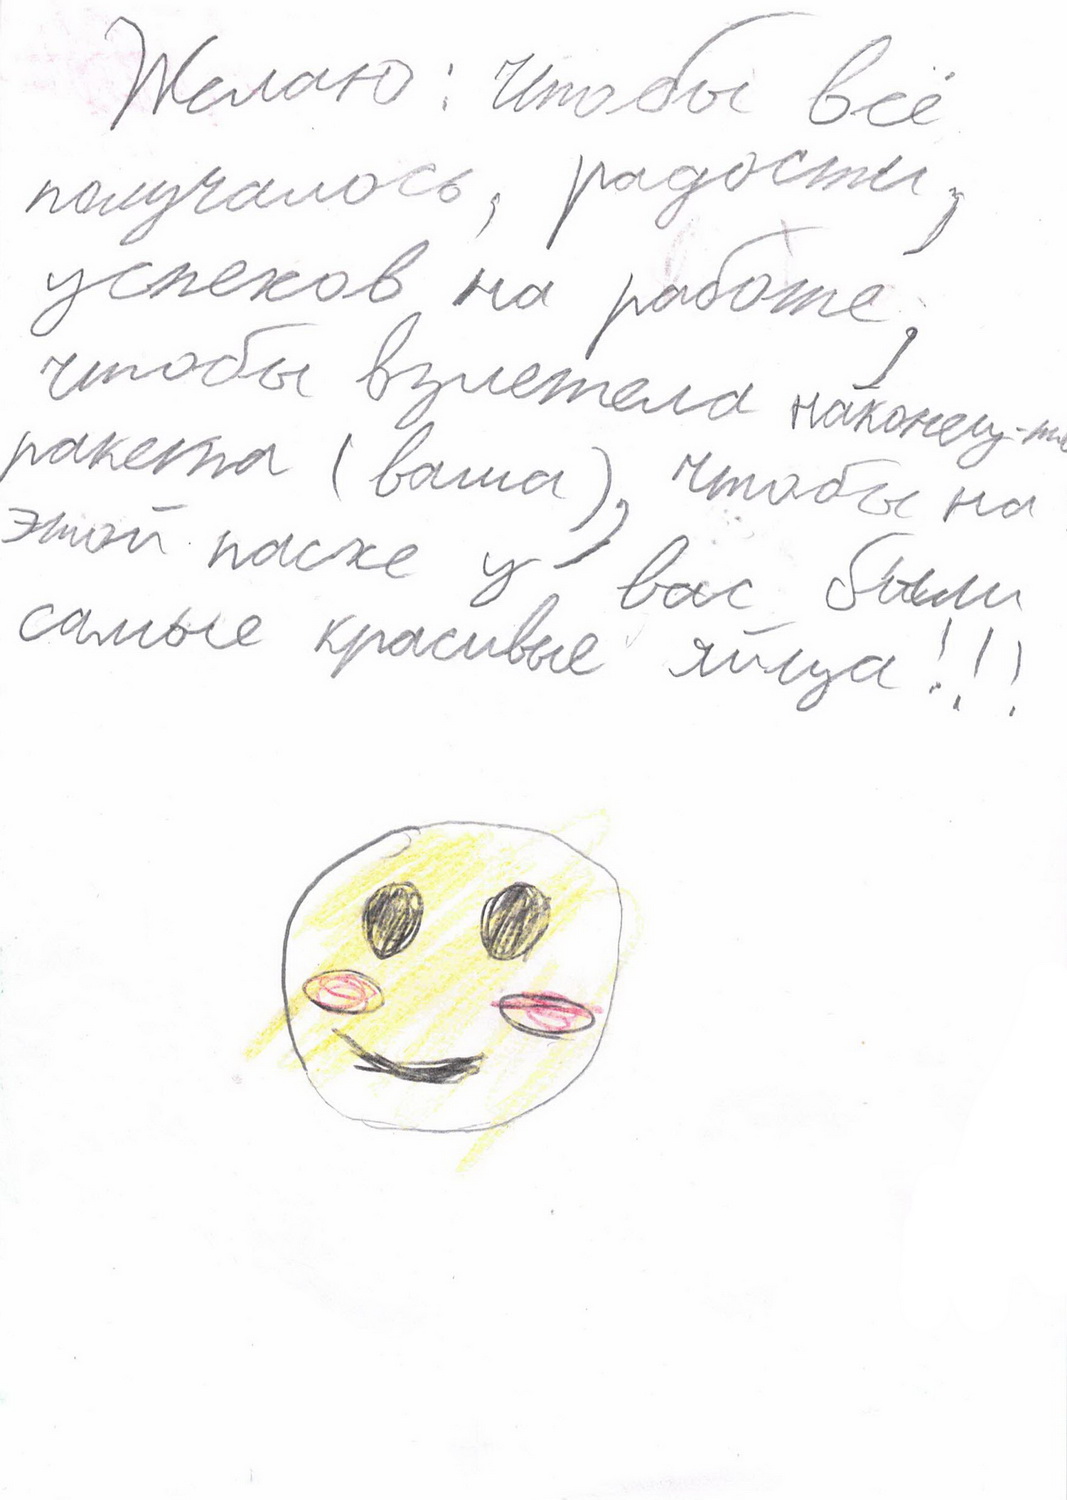 Желаю: Чтобы всё
получалось, радости,
успехов на работе,
чтобы взлетела наконец-то
ракета (ваша), чтобы на
этой пасхе у вас были
самые красивые яйца!!!